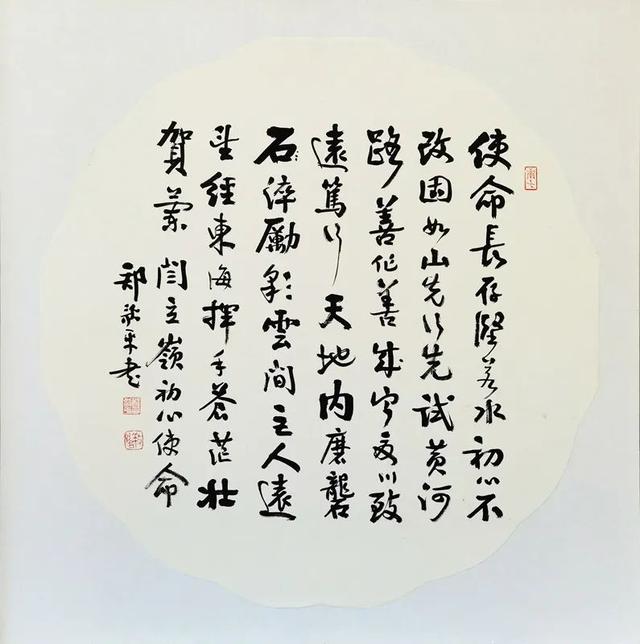 使命長存堅若水初心不
改固如山先行先試黄河
路善作善成寧夏川致
遠篤行天地内磨礱
石淬勵彩雲間主人遠
望經東海揮手蒼茫壮
賀蘭 閆立嶺初心使命
郑平书